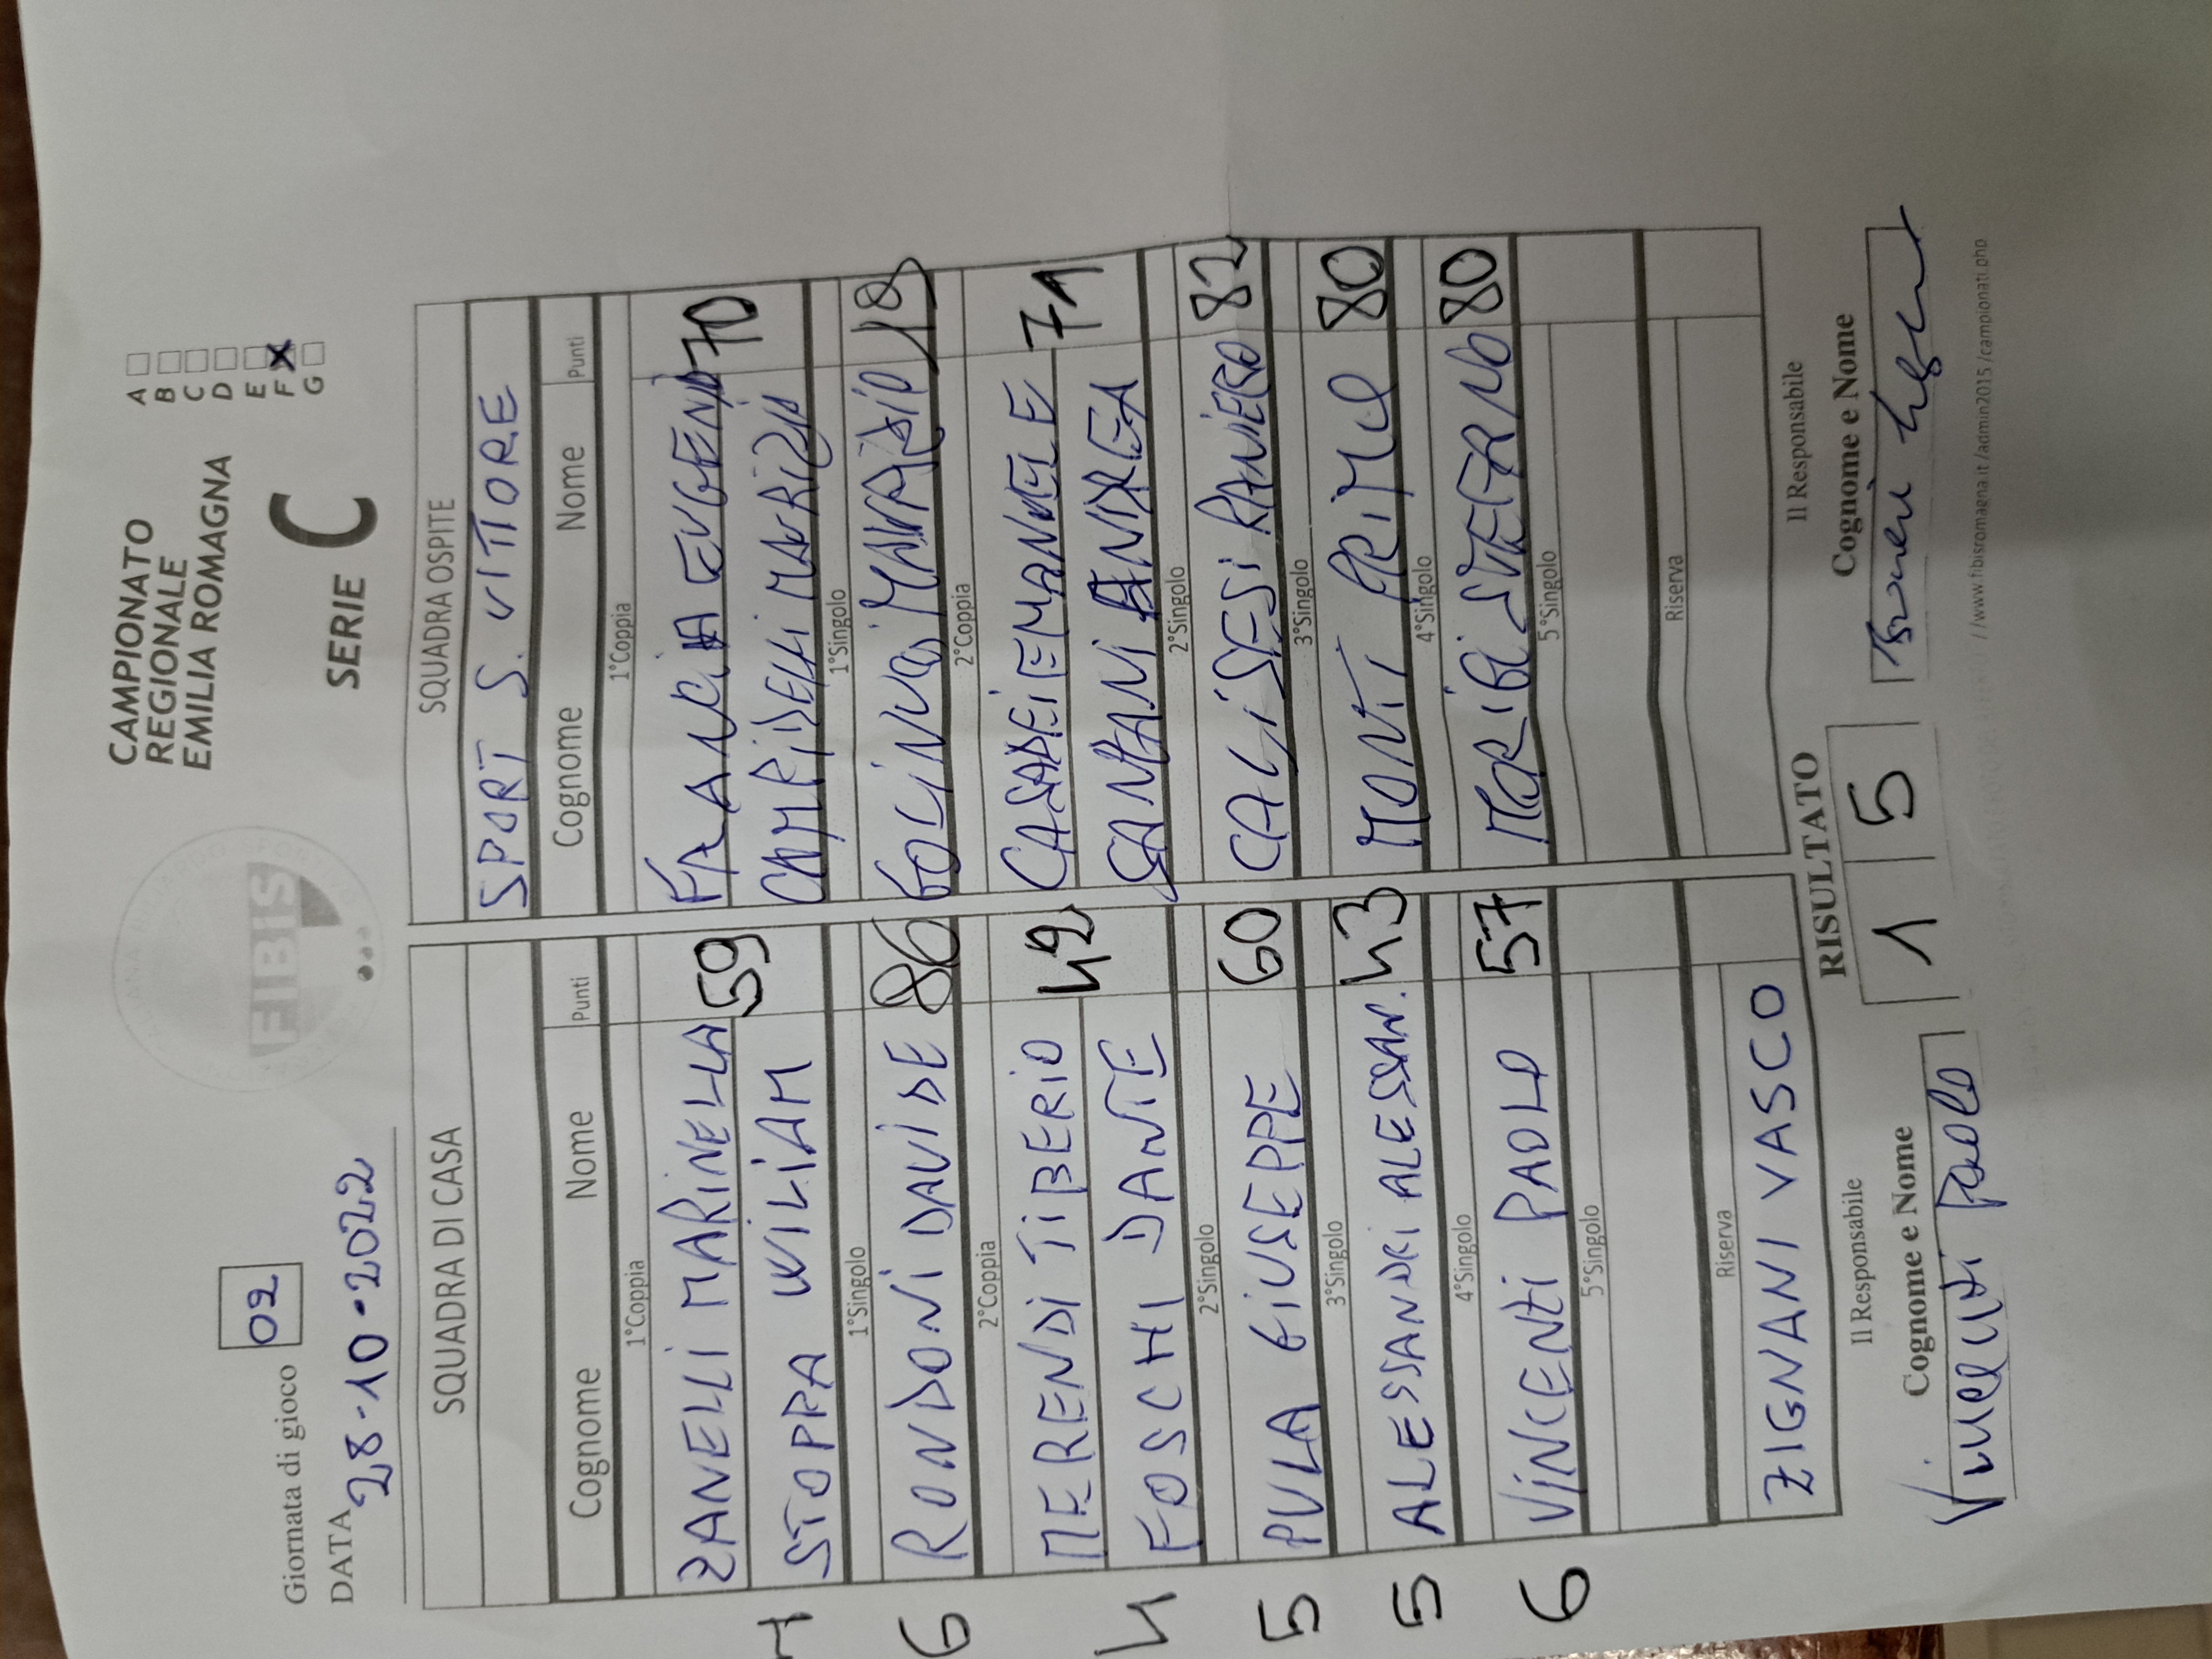 Giornata di gioco 02
DATA 28-10-2022
FIBIS
CAMPIONATO
REGIONALE
EMILIA ROMAGNA
SERIE C
A
B
C
D
E
F X
G
SQUADRA DI CASA
Cognome Nome Punti
1°Coppia
ZANELLI MARINELLA 59
STOPPA WILIAM
1°Singolo
RONDONI DAVIDE 86
2°Coppia
MERENDI TIBERIO 42
FOSCHI DANTE
2°Singolo
PULA GIUSEPPE 60
3°Singolo
ALESSANDRI ALESSAN. 43
4°Singolo
VINCENTI PAOLO 57
5°Singolo
Riserva
ZIGNANI VASCO
4
6
4
5
5
6
SQUADRA OSPITE
SPORT S. VITTORE
Cognome Nome Punti
1°Coppia
FRANCIA EUGENIO 70
CAMPIDELLI MAURIZIO
1°Singolo
GOLINUCCI MAURIZIO
2°Coppia
CASADEI EMANUELE 71
SANTANI ANDREA
2°Singolo
CALISESI RANIERO 82
3°Singolo
MONTI PRIMO 80
4°Singolo
STEFANO 80
5°Singolo
Riserva
RISULTATO
1 5
Il Responsabile
Cognome e Nome
Vincenti Paolo
Il Responsabile
Cognome e Nome
//www.fibisromagna.it/admin2015/campionati.php